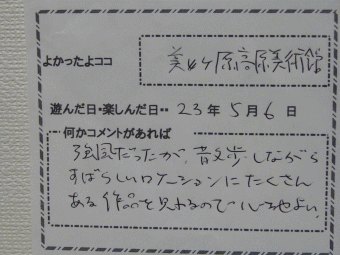 よかったよココ
美ヶ原高原美術館
遊んだ日・楽しんだ日・・ 23年 5月 6日
何かコメントがあれば
強風だったが、散歩しながら
すばらしいロケーションにたくさん
ある作品を見れるので